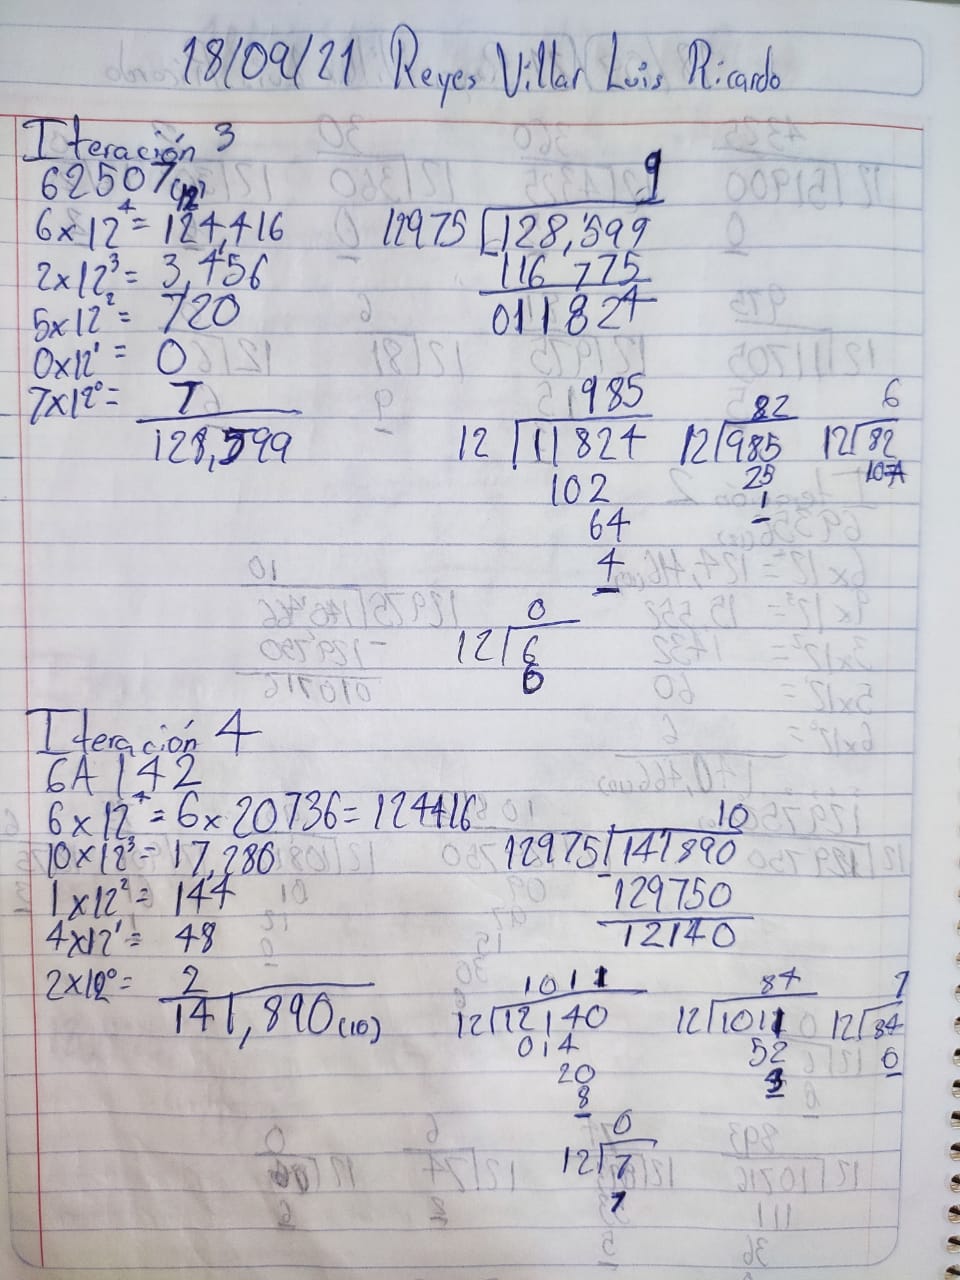 18/09/21 Reyes Villar Luis Ricardo
Iteración 3
62507(12)
6x12⁴= 124,416
2x12³= 3,456
5x12²= 720
0x12¹= 0
7x12⁰= 7
128,599
9
12975 128,599
116 775
011824
985
12 11824
102
64
4
82
12 985
25
1
6
12 82
10
0
12 6
6
Iteración 4
6A142
6x12⁴=6x20736=124416
10x12³= 17,280
1x12²= 144
4x12¹= 48
2x12⁰= 2
141,890(10)
10
12975 141890
129750
12140
1011
12 12140
014
20
8
84
12 1011
52
3
7
12 84
0
0
12 7
7